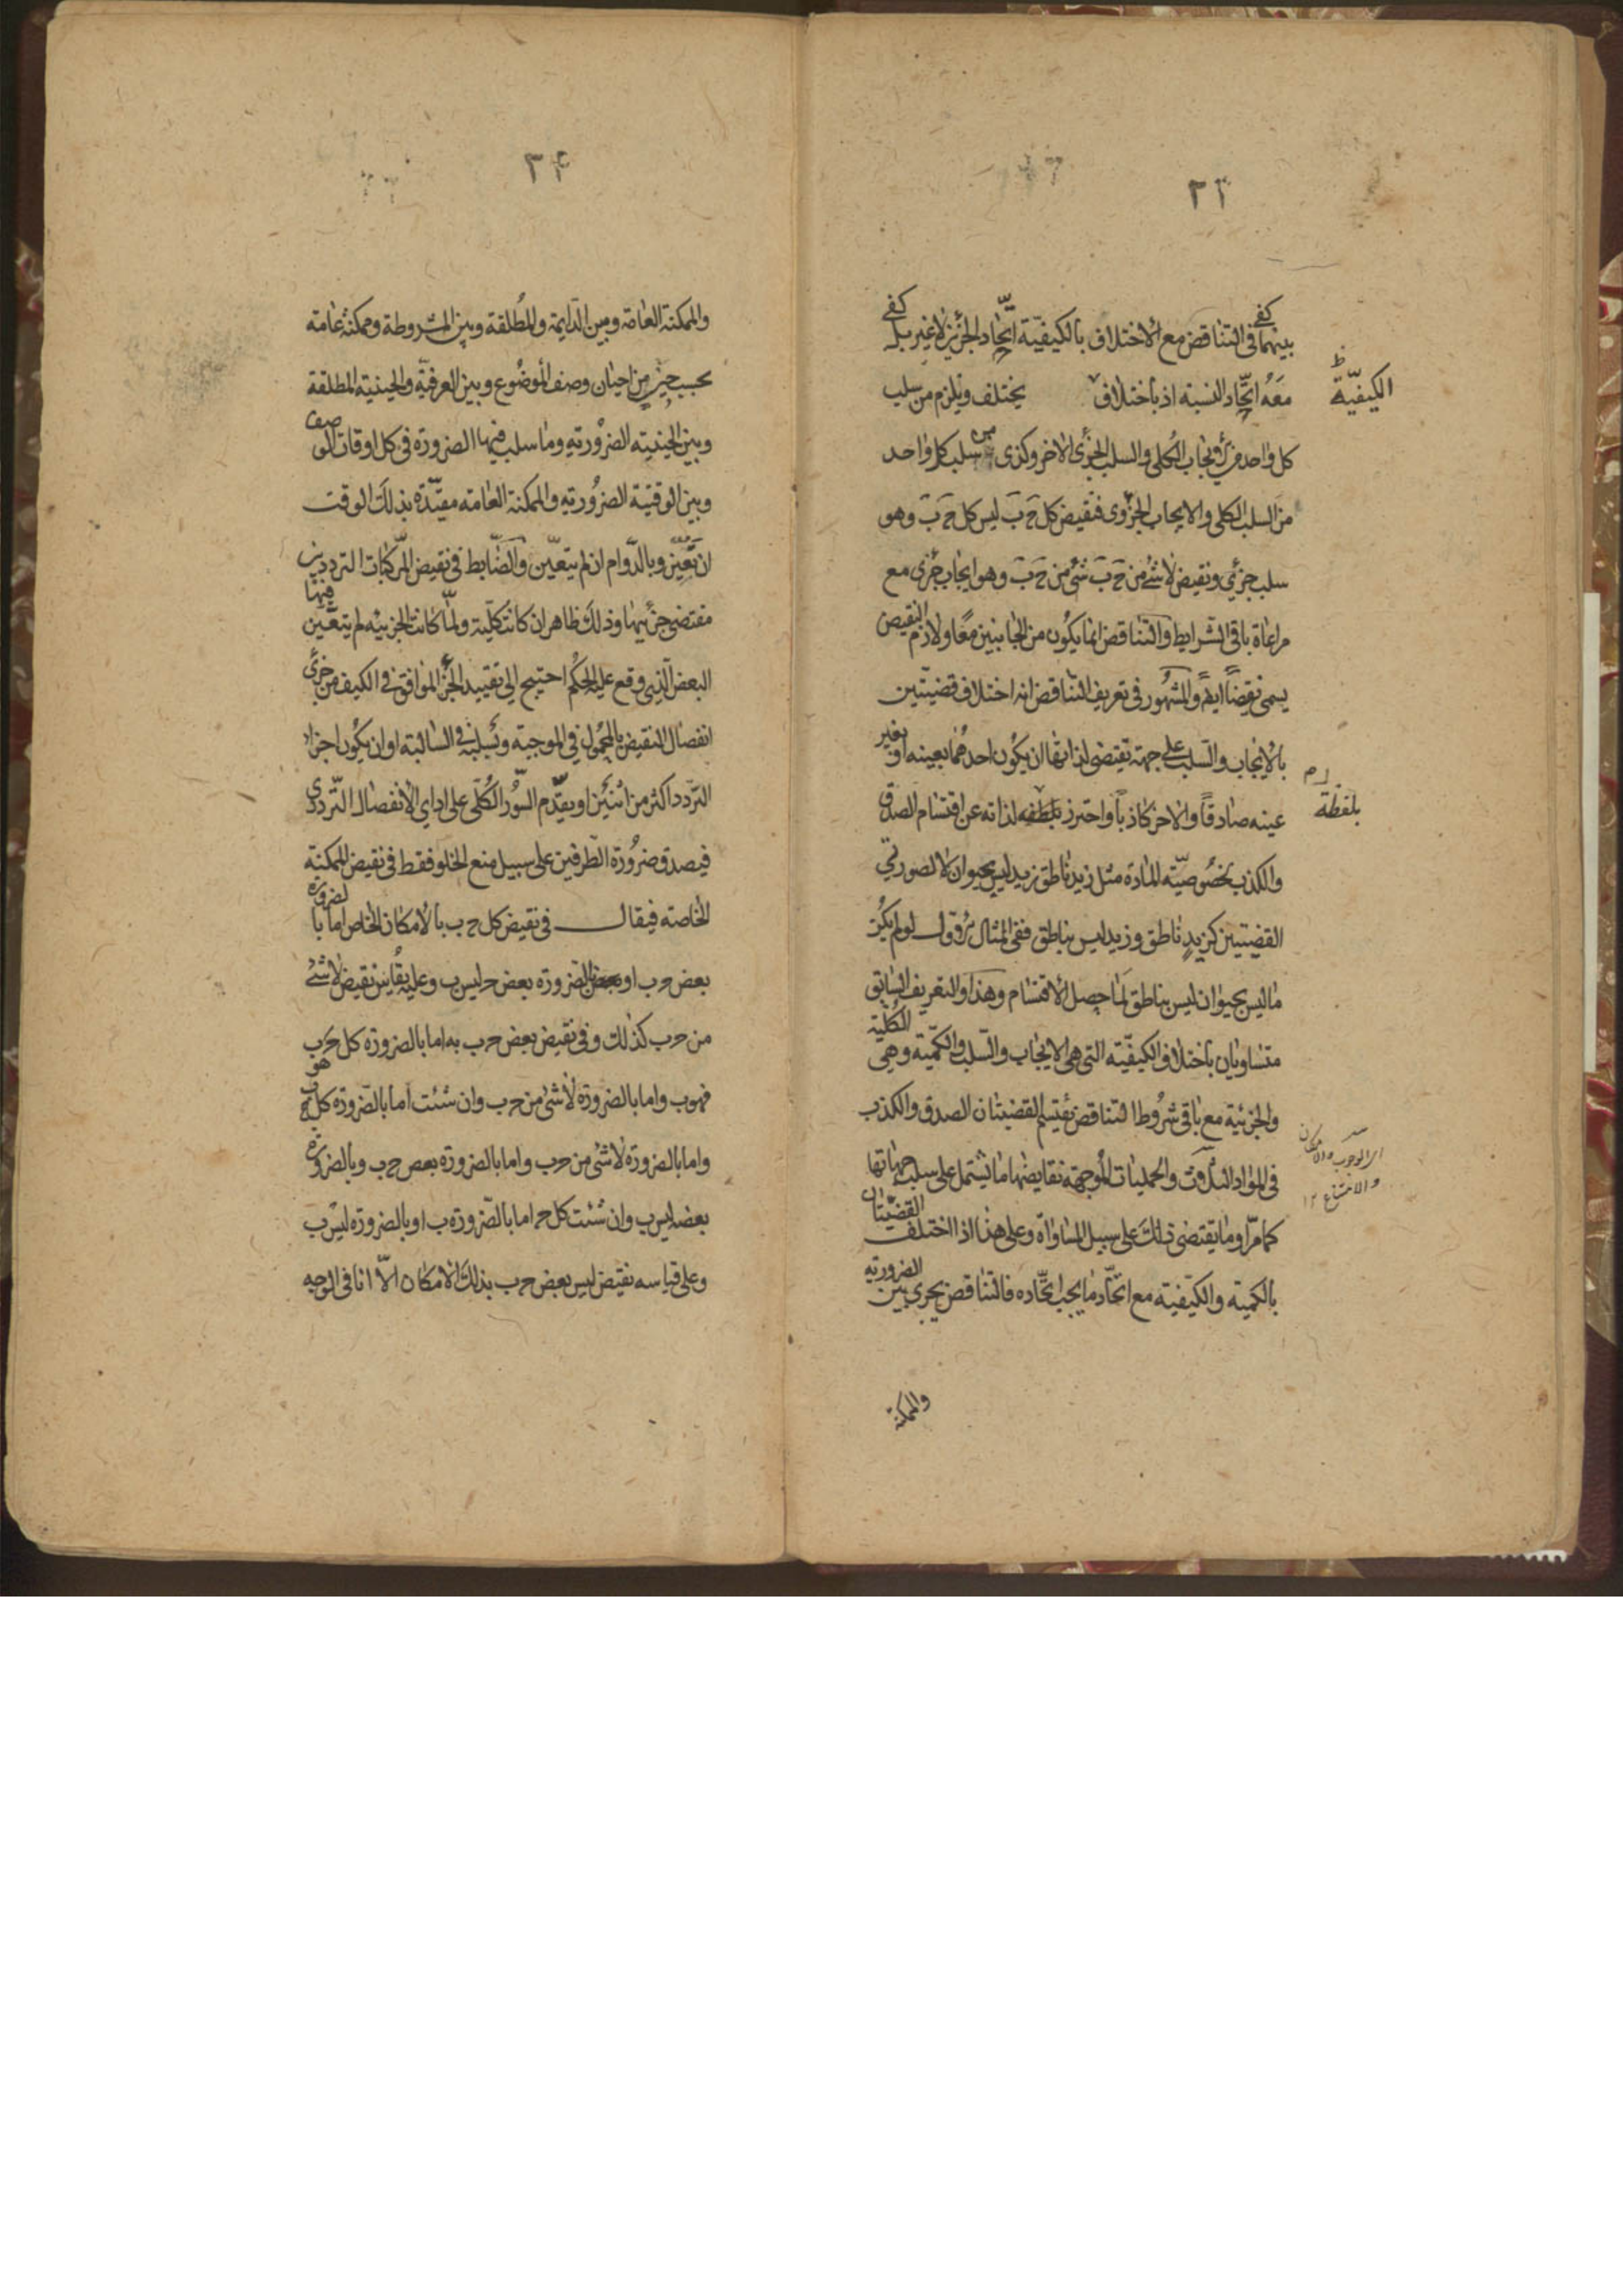 ٢٣
بينهما كفى فى التناقض مع الاختلاف بالكيفيّة اتّحاد الجزئين لا غير بل كفى
معه اتّحاد النسبة اذ باختلاف يختلف ويلزم من سلب
الكيفيّة
كل واحد من الايجاب الكلى والسلب الجزئى الاخر وكذى من سلب كل واحد
من السلب الكلى والايجاب الجزوى فنقيض كل ج ب ليس كل ج ب وهو
سلب جزئى ونقيض لا شئ من ج ب شئ من ج ب وهو ايجاب جزى مع
مراعاة باقى الشرايط والتناقض انما يكون من الجانبين معًا ولازم النقيض
يسمى نقيضًا ايضً والمشهور فى تعريف التناقض انه اختلاف قضيتين
بالايجاب والسلب على جهة تقتضى لذاتها ان يكون احدهما بعينه او بغير
عينه صادقًا والاخر كاذبًا واحترز بلفظه لذاته عن اقتسام الصدق
بلفظة
والكذب بخصوصيّة المادة مثل زيد ناطق زيد ليس بحيوان لا لصورتي
القضيتين كزيدٍ ناطق وزيد ليس بناطق ففى المثال لو لم يكن
ما ليس بحيوان ليس بناطق لما حصل الاقتسام وهذا والتعريف السابق
متساويان باختلاف الكيفيّة التى هى الايجاب والسلب والكميّة وهى الكليّة
والجزئية مع باقى شروط التناقض يقتسم القضيتان الصدق والكذب
فى المواد الثلاث والحمليات الموجهة نقايضها ما يشتمل على سلب جهاتها
اى الوجوب والامكان
والامتناع ١٢
كما مرّ او ما يقتضى ذلك على سبيل المساواة وعلى هذا اذا اختلفت القضيّتان
بالكمية والكيفية مع اتّحاد ما يجب اتّحاده فالتناقض يجرى بين الضرورية
والممكنة
٢٤
والممكنة العامّة وبين الدّايمة والمُطلقة وبين المشروطة وممكنة عامة
بحسب حين من احيان وصف الموضوع وبين العرفيّة والحينية المطلقة
وبين الحينية الضرورية وما سلب فيها الضرورة فى كل اوقات الوصف
وبين الوقتية الضرورية والممكنة العامه مقيّدة بذلك الوقت
ان تعيّن وبالدّوام ان لم يتعيّن والضّابط فى نقيض المركبات الترديد بين
مقتضى جزئيها وذلك ظاهر ان كانت كليّة ولمّا كانت الجزييّه لم يتعيّن فيها
البعض الّذى وقع عليه الحكم احتيج الى تقييد الجزء الموافق فى الكيف من جزئى
انفصال النقيض بالمحمول فى الموجبة وبسلبه فى السالبة او ان يكون اجزاء
التردد اكثر من اثنين او يقدّم السّور الكلّى على اداى الانفصال التّردى
فيصدق ضرورة الطّرفين على سبيل منع الخلو فقط فى نقيض الممكنة
الخاصه فيقال فى نقيض كل ج ب بالامكان الخاص اما بالضرورة
بعض ج ب او بالضرورة بعض ج ليس ب وعليه يقاس نقيض لا شئ
من ج ب كذلك وفى نقيض بعض ج ب به اما بالضرورة كل ج ب
فهو ب واما بالضرورة لا شئ من ج ب وان شئت اما بالضرورة كل ج هو ب
واما بالضرورة لا شئ من ج ب واما بالضرورة بعض ج ب وبالضرورة
بعضه ليس ب وان شئت كل ج اما بالضرورة ب او بالضرورة ليس ب
وعلى قياسه نقيض ليس بعض ج ب بذلك الامكان الّا انا فى الوجه